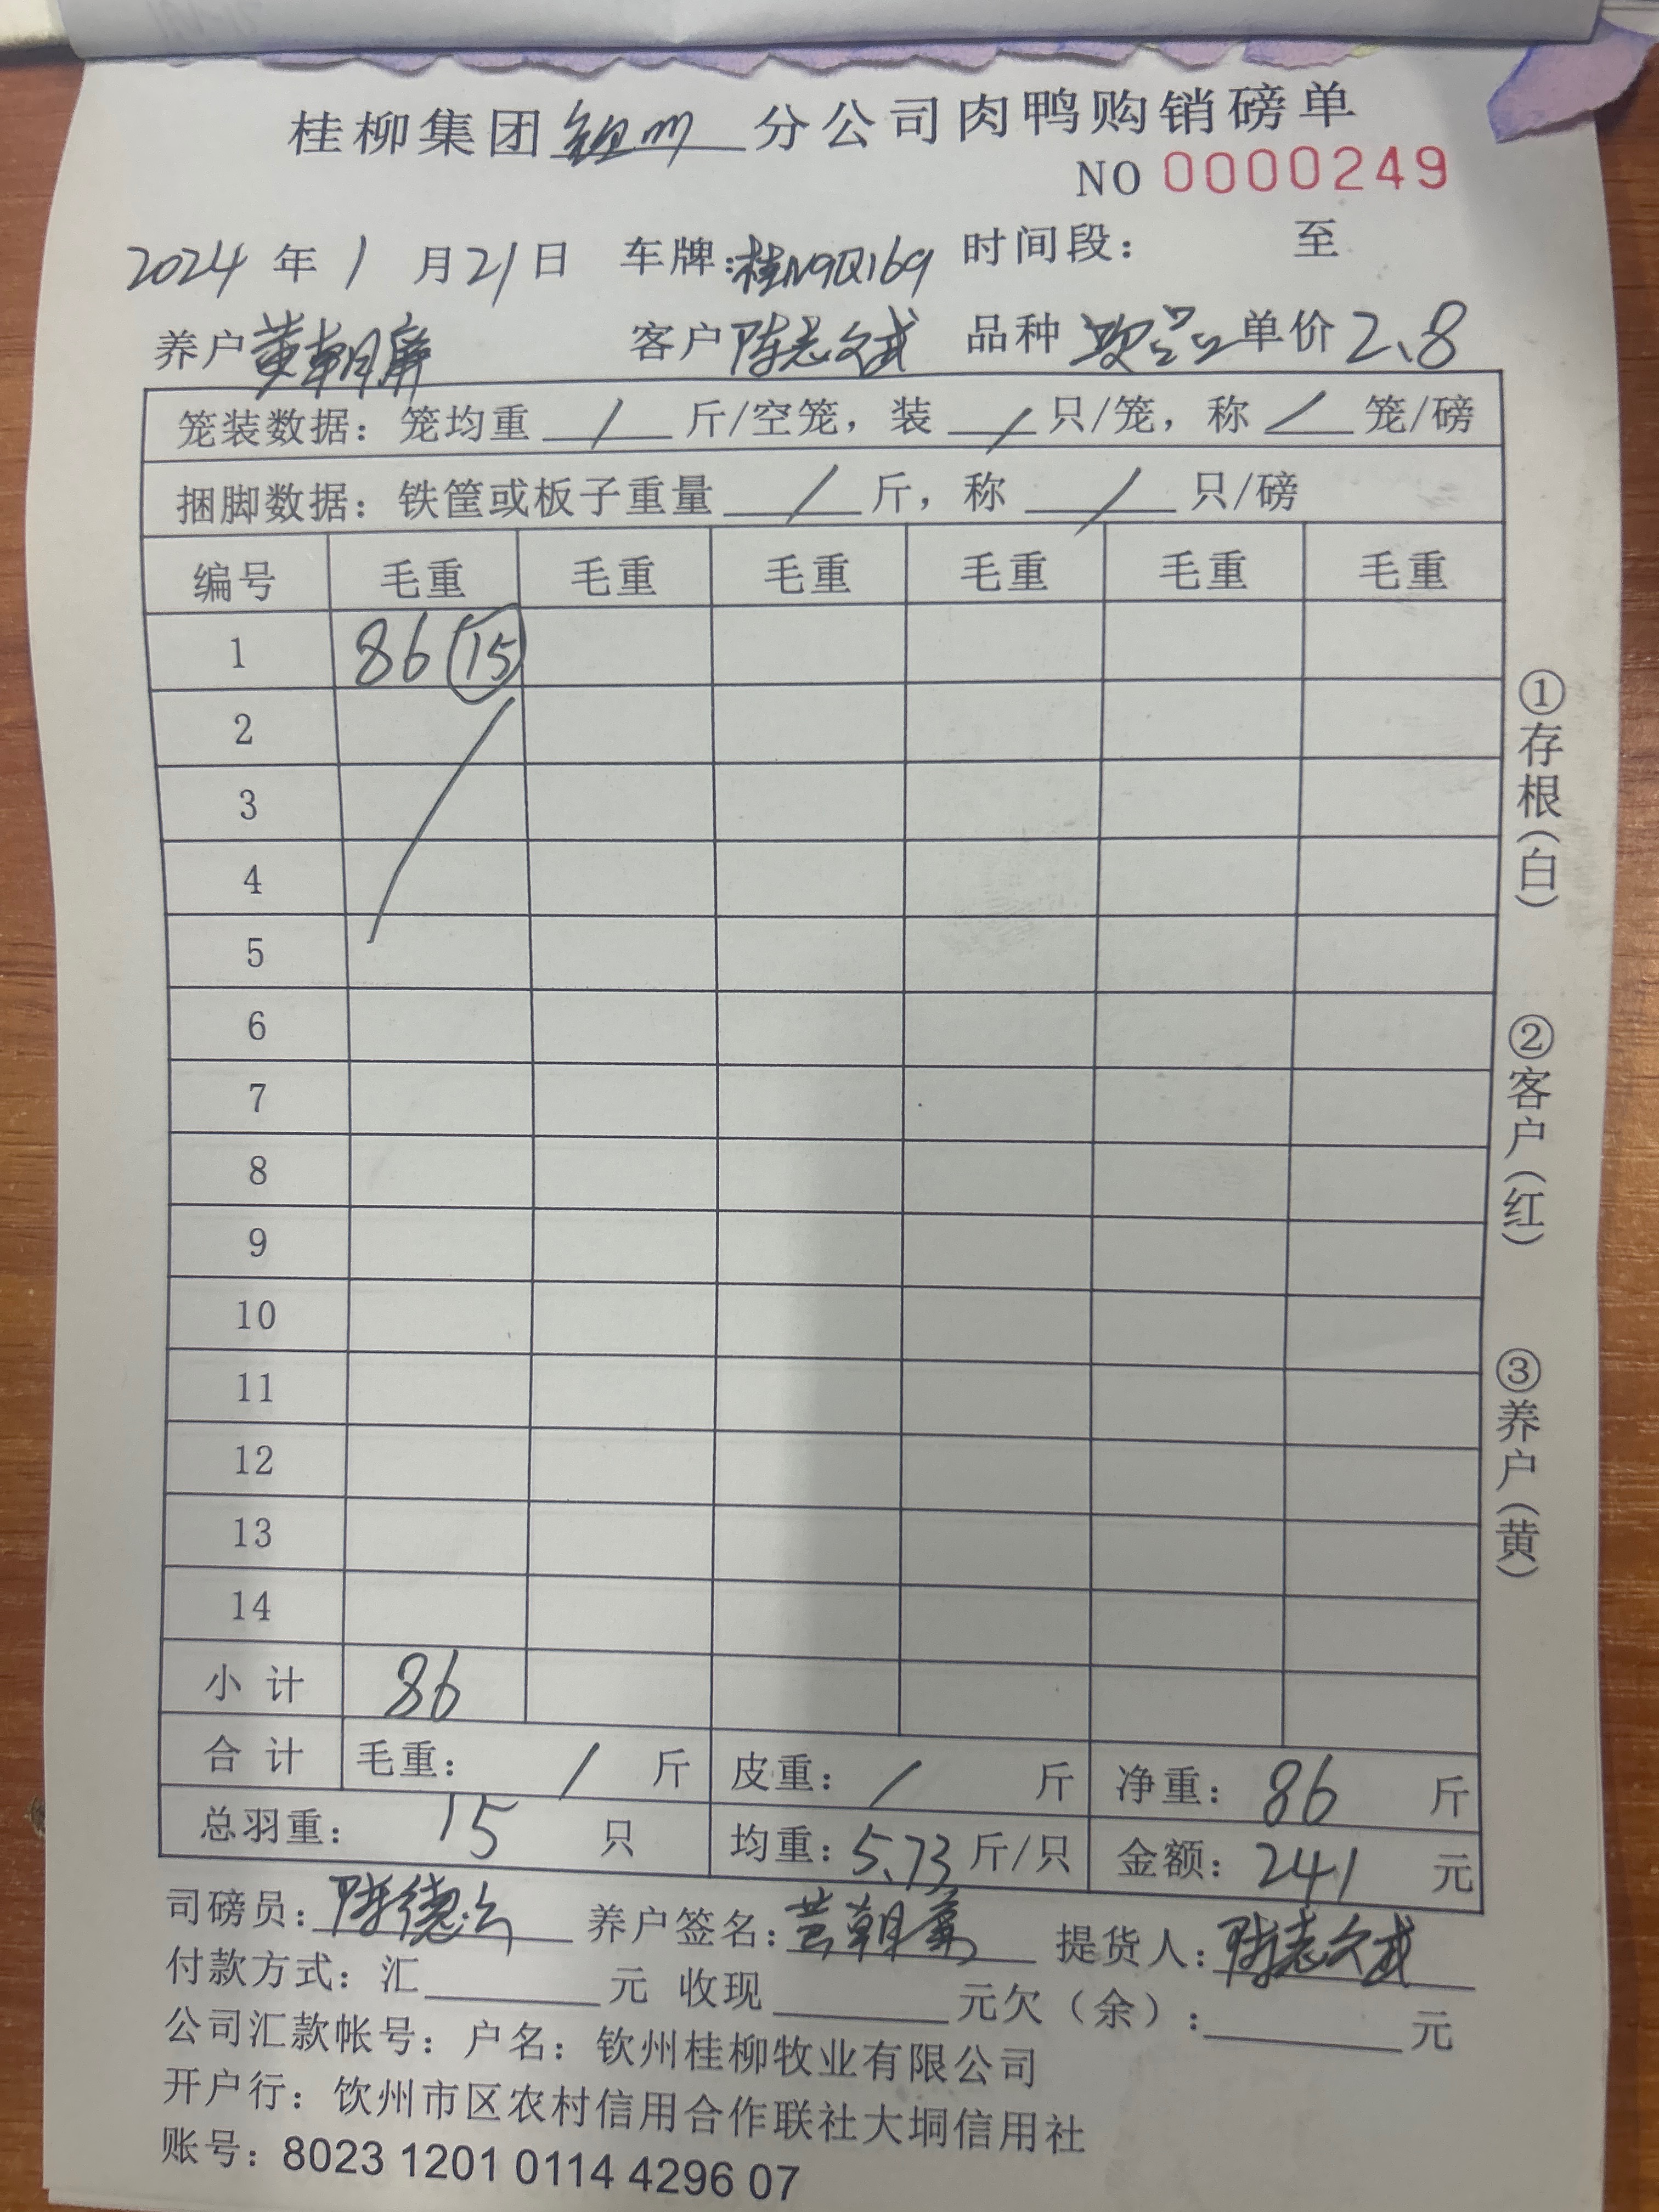 桂柳集团钦州分公司肉鸭购销磅单
NO 0000249
2024年1月21日 车牌:桂N9Q169 时间段: 至
养户黄朝 客户陈志斌 品种 单价2.8
笼装数据:笼均重 / 斤/空笼,装 / 只/笼,称 / 笼/磅
捆脚数据:铁筐或板子重量 / 斤,称 / 只/磅
编号 毛重 毛重 毛重 毛重 毛重 毛重
1 86 ⑮
2
3
4
5
6
7
8
9
10
11
12
13
14
小计 86
合计 毛重: / 斤 皮重: / 斤 净重: 86 斤
总羽重: 15 只 均重:5.73斤/只 金额:241元
司磅员:陈德 养户签名:黄朝 提货人:陈志斌
付款方式:汇 元 收现 元欠(余): 元
公司汇款帐号:户名:钦州桂柳牧业有限公司
开户行:钦州市区农村信用合作联社大垌信用社
账号:8023 1201 0114 4296 07
①存根(白)
②客户(红)
③养户(黄)